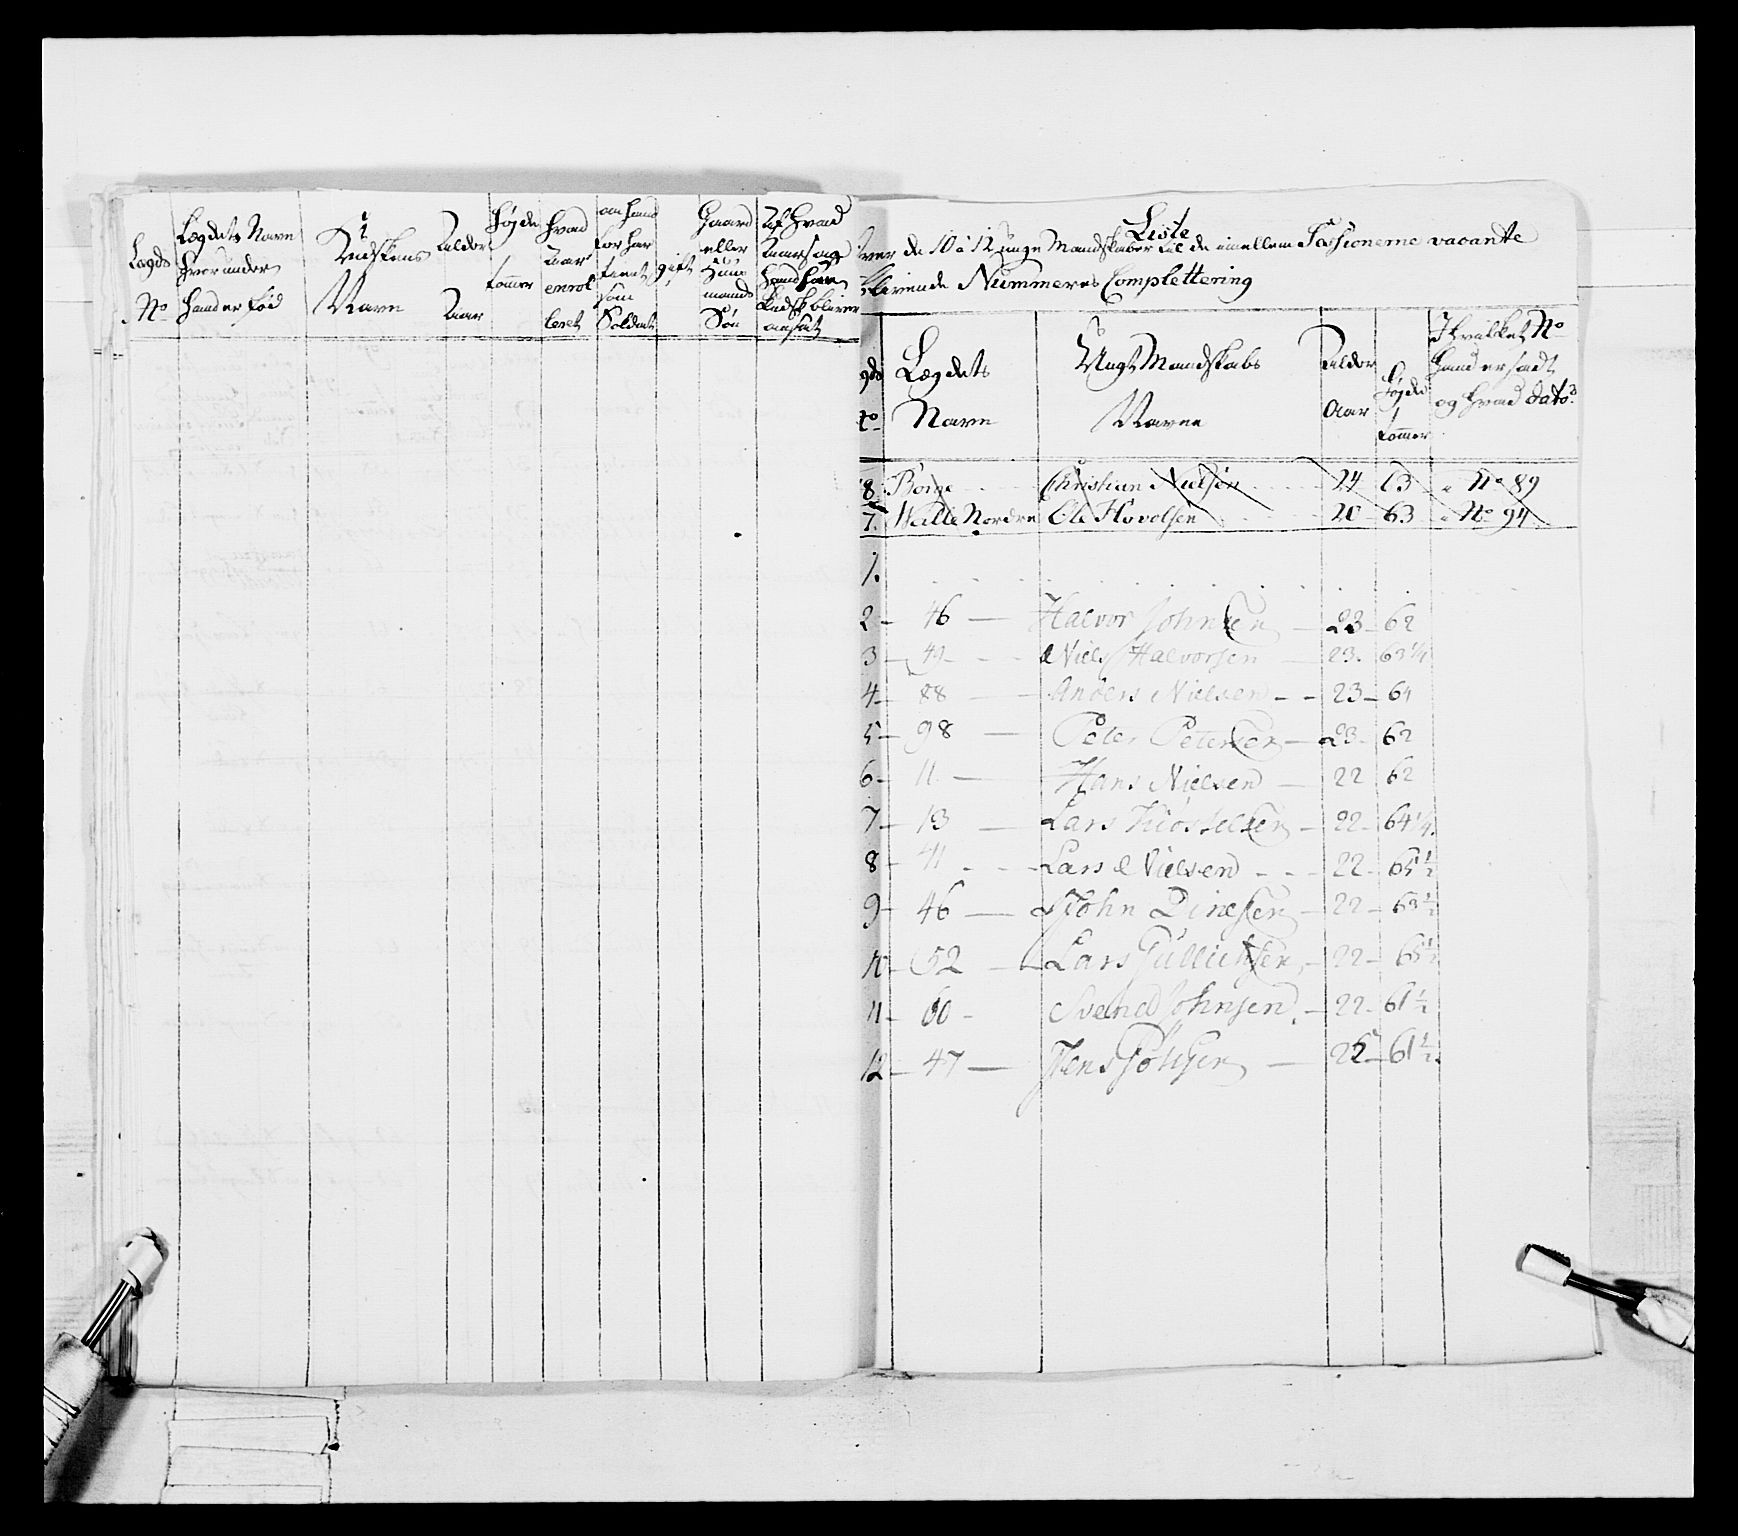 Lægds
No
Lægdets Navn
hvorunder
hand er fød
Navn
Alder
Aar
Højde
tommer
hvad
Aar
enrol
leret
om hand
før har
tient
som
Soldat
gift
Gaard
eller
Huus
mands
Søn
Af hvad
Aarsag
hand
bliver
ansat
Liste
over de 10 à 12 unge Mandskaber til de imellem Sessionerne vacante
blivende Nummeres Complettering
Lægdets
Navn
Ungt Mandskabs
Navne
Alder
Aar
Højde
tommer
I hvilket No
hand er sadt
og hvad dato
8 Borge Christian Nielsen 24 63 No 89
7. Walle Nordre Ole Hovolsen 20 63 No 94
1.
2 - 46 — Halvor Johnsen — 23 - 62
3 - 41 - - - Niels Halvorsen — 23. 63 1/4
4 - 88 — Anders Nielsen - - 23 - 64
5 - 98 — Peter Petersen — 23 - 62
6 - 11. — Hans Nielsen — 22 62
7 - 13 — Lars — 22 - 64 1/4.
8 - 41 - - - Lars Nielsen - - - 22 - 65 1/2
9 - 46 — John Dinesen — 22 - 63 1/2
10 - 52 — Lars Gullichsen - 22 -
11 - 60 - Svend Johnsen. - 22 - 61 1/2
12 - 47 — Jens — 61 1/2.